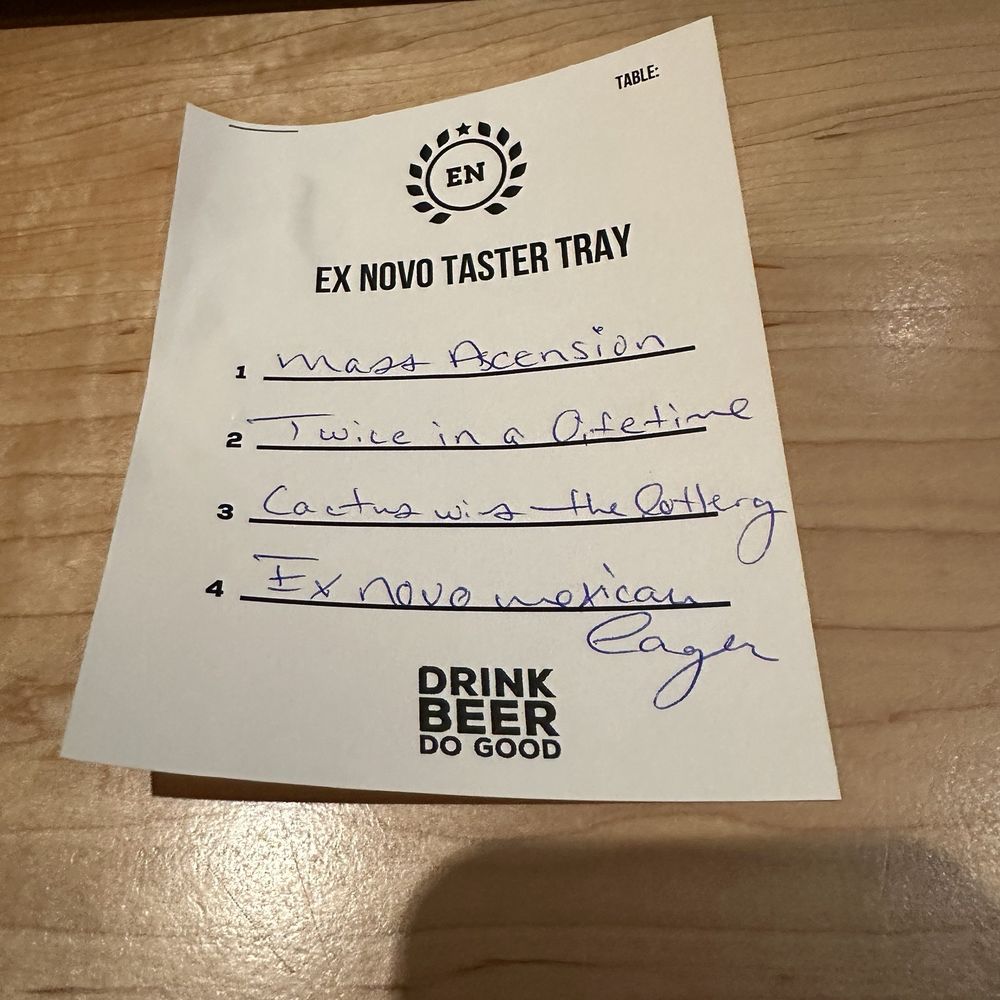 TABLE:
EN
EX NOVO TASTER TRAY
1 Mass Ascension
2 Twice in a Lifetime
3 Cactus wins the lottery
4 Ex novo mexican
lager
DRINK
BEER
DO GOOD